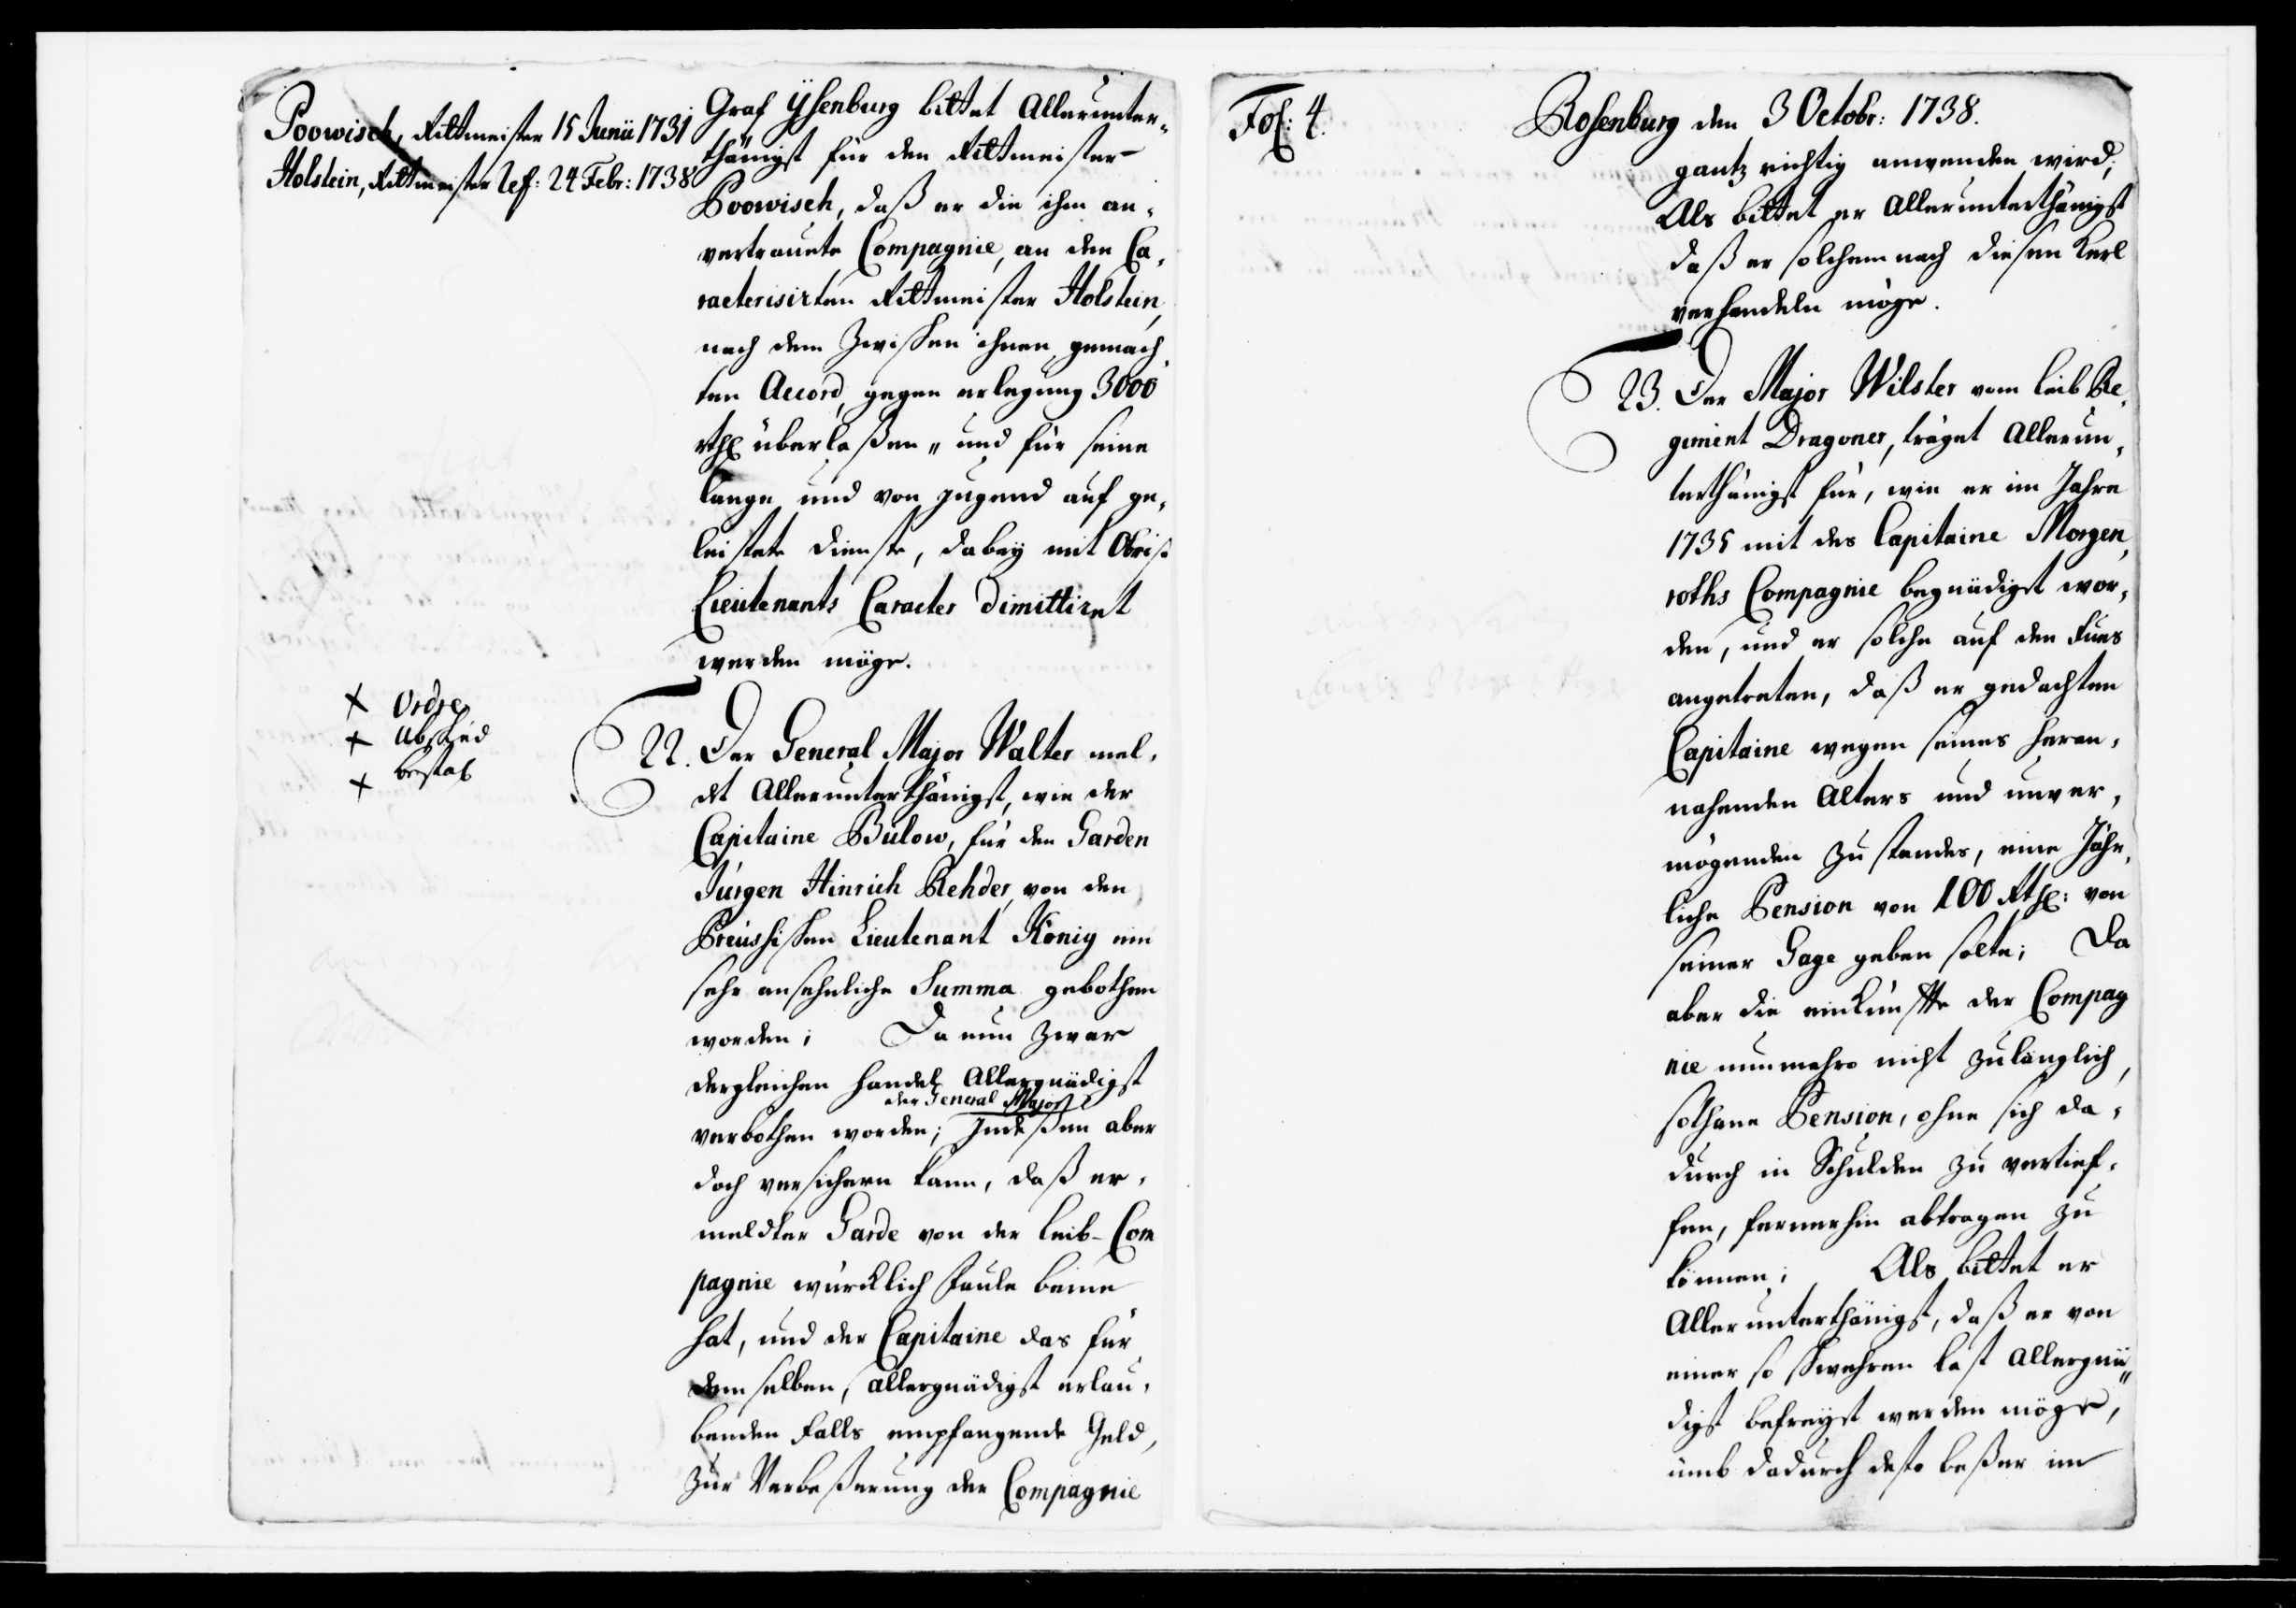 Poowisch, Rittmeister 15 Junii 1731
Holstein, Rittmeister Ref: 24 Febr: 1738
Graf Ÿsenburg bittet Allerunter,,
thänigst für den Rittmeister
Poowisch, daß er die ihm an,
vertrauete Compagnie, an den Ca,
racterisirten Rittmeister Holstein,
nach dem zwischen ihnen gemach,
ten Accord, gegen erlegung 3000
rthl überlaßen" und für seine
lange und von jugend auf ge,
leistete dienste, dabey mit Obrist
Lieutenants Caracter dimittiret
werden möge.
+ Ordre
+ Abschied
+ bestal
22. Der General Major Walter mel,
det Allerunterthänigst, wie der
Capitaine Bülow, für den Garden
Jürgen Hinrich Rehder, von den
Preussischen Lieutenant König eine
sehr ansehnliche Summa gebothen
worden; Da nun zwar
dergleichen handel Allergnädigst
der General Major
verbothen worden; Indeßen aber
doch versichern kann, daß er,
meldter Garde von der Leib-Com
pagnie würcklich faule beine
hat, und der Capitaine das für
demselben, allergnädigst erlau,
benden Falls empfangende Geld,
zur Verbeßerung der Compagnie
Fol: 4.
Rosenburg den 3 Octobr: 1738.
gantz richtig anwenden wird;
Als bittet er Allerunterthänigst
daß er solchemnach diesen Kerl
verhandeln möge.
23. Der Major Wilster vom Leib Re,
giment Dragoner, träget Allerun,
terthänigst für, wie er im Jahre
1735 mit des Capitaine Morgen,
roths Compagnie begnädiget wor,
den, und er solche auf den Fues
angetreten, daß er gedachten
Capitaine wegen seines heran,
nahenden Alters und unver,
mögenden zustandes, eine Jähr,
liche Pension von 100 Rthl: von
seiner Gage geben solte; Da
aber die einkünffte der Compag
nie nunmehro nicht zulänglich,
sothane Pension, ohne sich da,
durch in Schulden zu vertief,
fen, fernerhin abtragen zu
können; Als bittet er
Allerunterthänigst, daß er von
einer so schwehren last Allergnä,,
digst befreyet werden möge,
umb dadurch desto beßer im